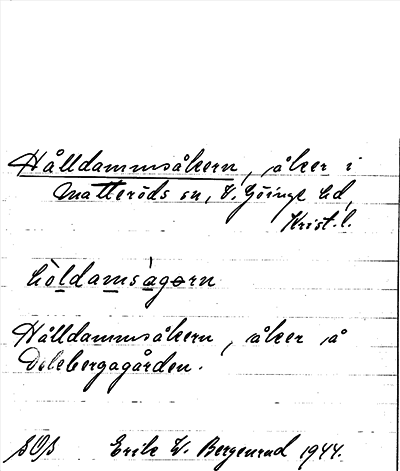 Hålldammsåkern, åker i
Matteröds sn, V. Göinge hd,
Krist. l.
hòldamsàgərn
Hålldammsåkern, åker å
Dalebergagården.
SOS Erik W. Bergenrud 1944.